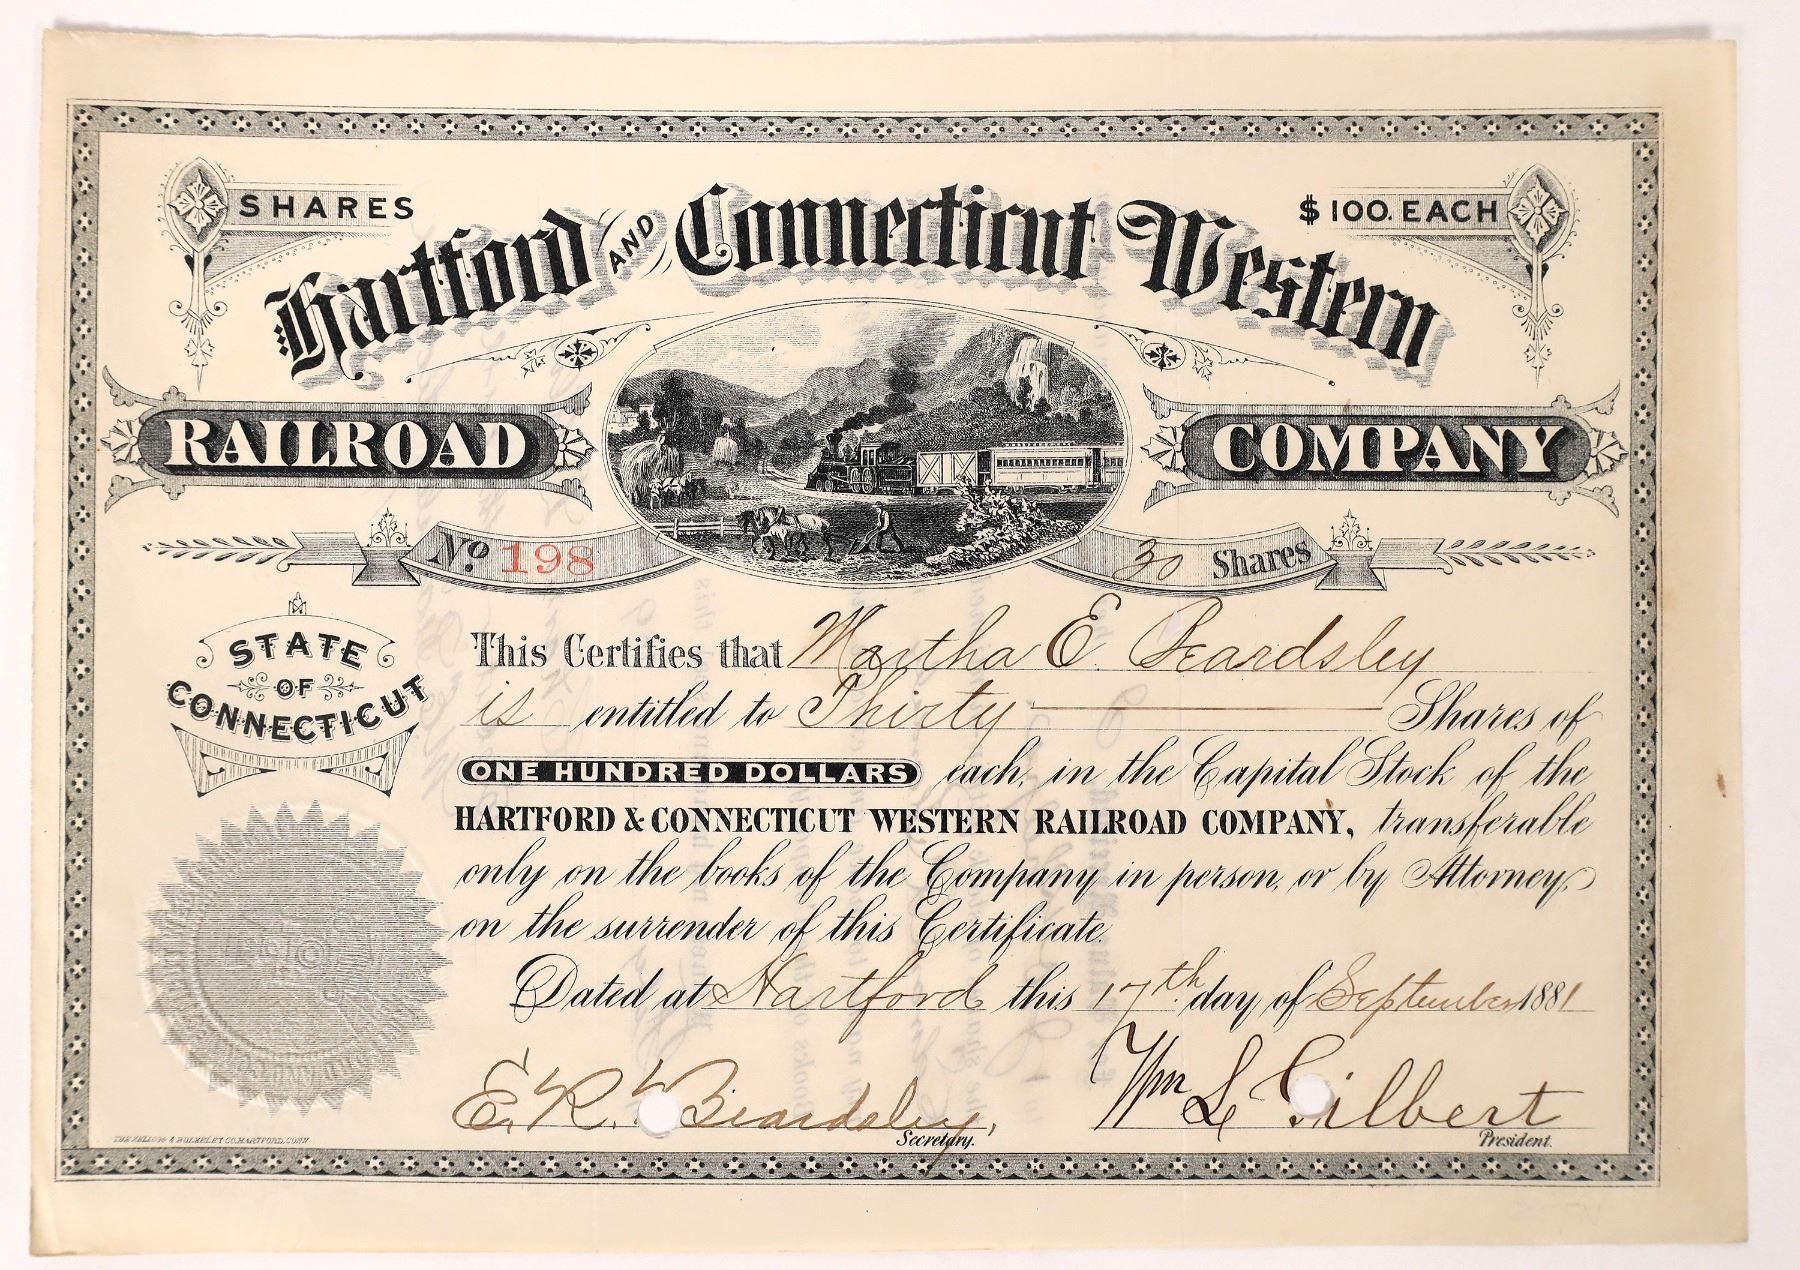 SHARES
$100. EACH
Hartford AND Connecticut Western
RAILROAD COMPANY
No. 198
30 Shares
STATE
OF
CONNECTICUT
This Certifies that Martha E. Beardsley
is entitled to Thirty Shares of
ONE HUNDRED DOLLARS each, in the Capital Stock of the
HARTFORD & CONNECTICUT WESTERN RAILROAD COMPANY, transferable
only on the books of the Company in person, or by Attorney,
on the surrender of this Certificate.
Dated at Hartford this 17th day of September 1881
E. R. Beardsley, Secretary.
Wm L Gilbert President.
THE KELLOGG & BULKELEY CO. HARTFORD, CONN.